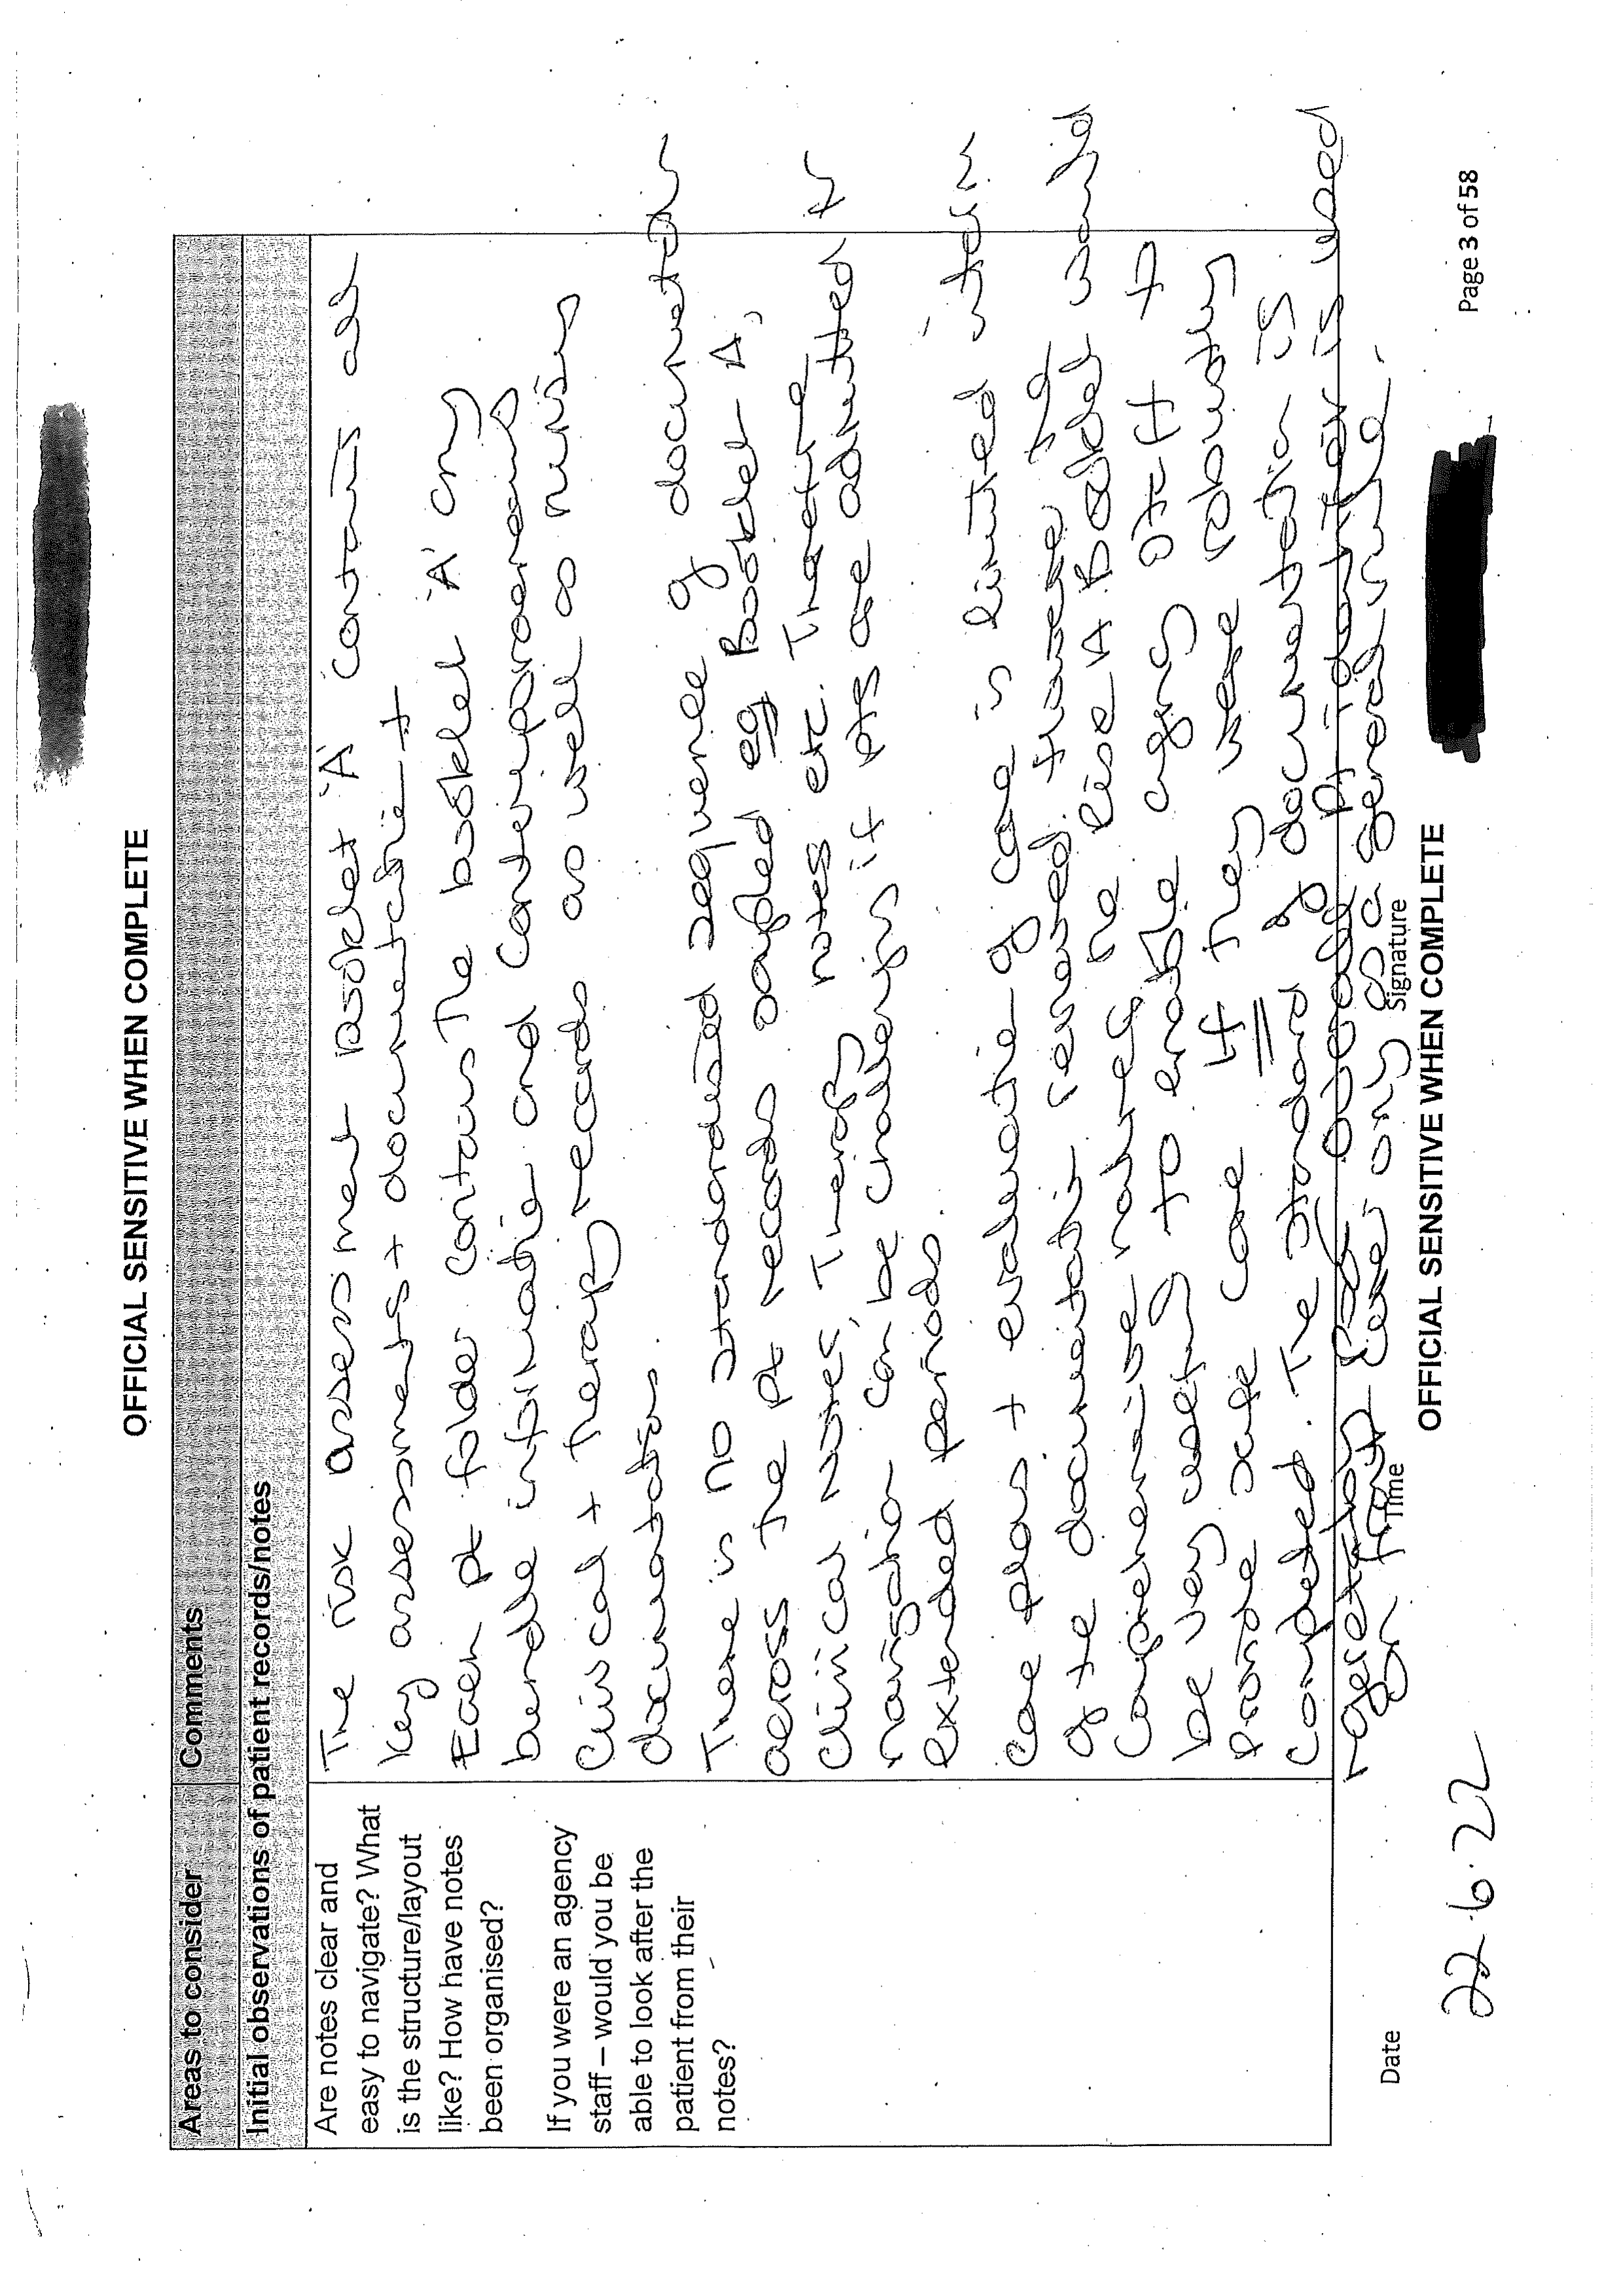 OFFICIAL SENSITIVE WHEN COMPLETE
Areas to consider
Comments
Initial observations of patient records/notes
Are notes clear and
easy to navigate? What
is the structure/layout
like? How have notes
been organised?
If you were an agency
staff – would you be
able to look after the
patient from their
notes?
The risk assessment booklet 'A' contains all
key assessments + documentation +
Each pt folder contains the booklet 'A' any
bundle information and contemporaneous
Clinical + therapy records as well as nursing
documentation.
There is no standardised sequence of documentation
across the pt records sampled eg Booklet A,
Clinical notes, Therapy notes etc. Therefore
navigation can be challenging if pts are admitted for
extended periods.
Care plans + evaluation of care is limited within
of the documentation reviewed. however the
Comprehensive nature of the Rise A Booklet would
be very useful to enable agency staff to
provide safe care if they were robustly
completed. The standard of documentation is
Pt identifier is used
on front only as a general rule.
Date
22.6.22
Time
Signature
OFFICIAL SENSITIVE WHEN COMPLETE
Page 3 of 58